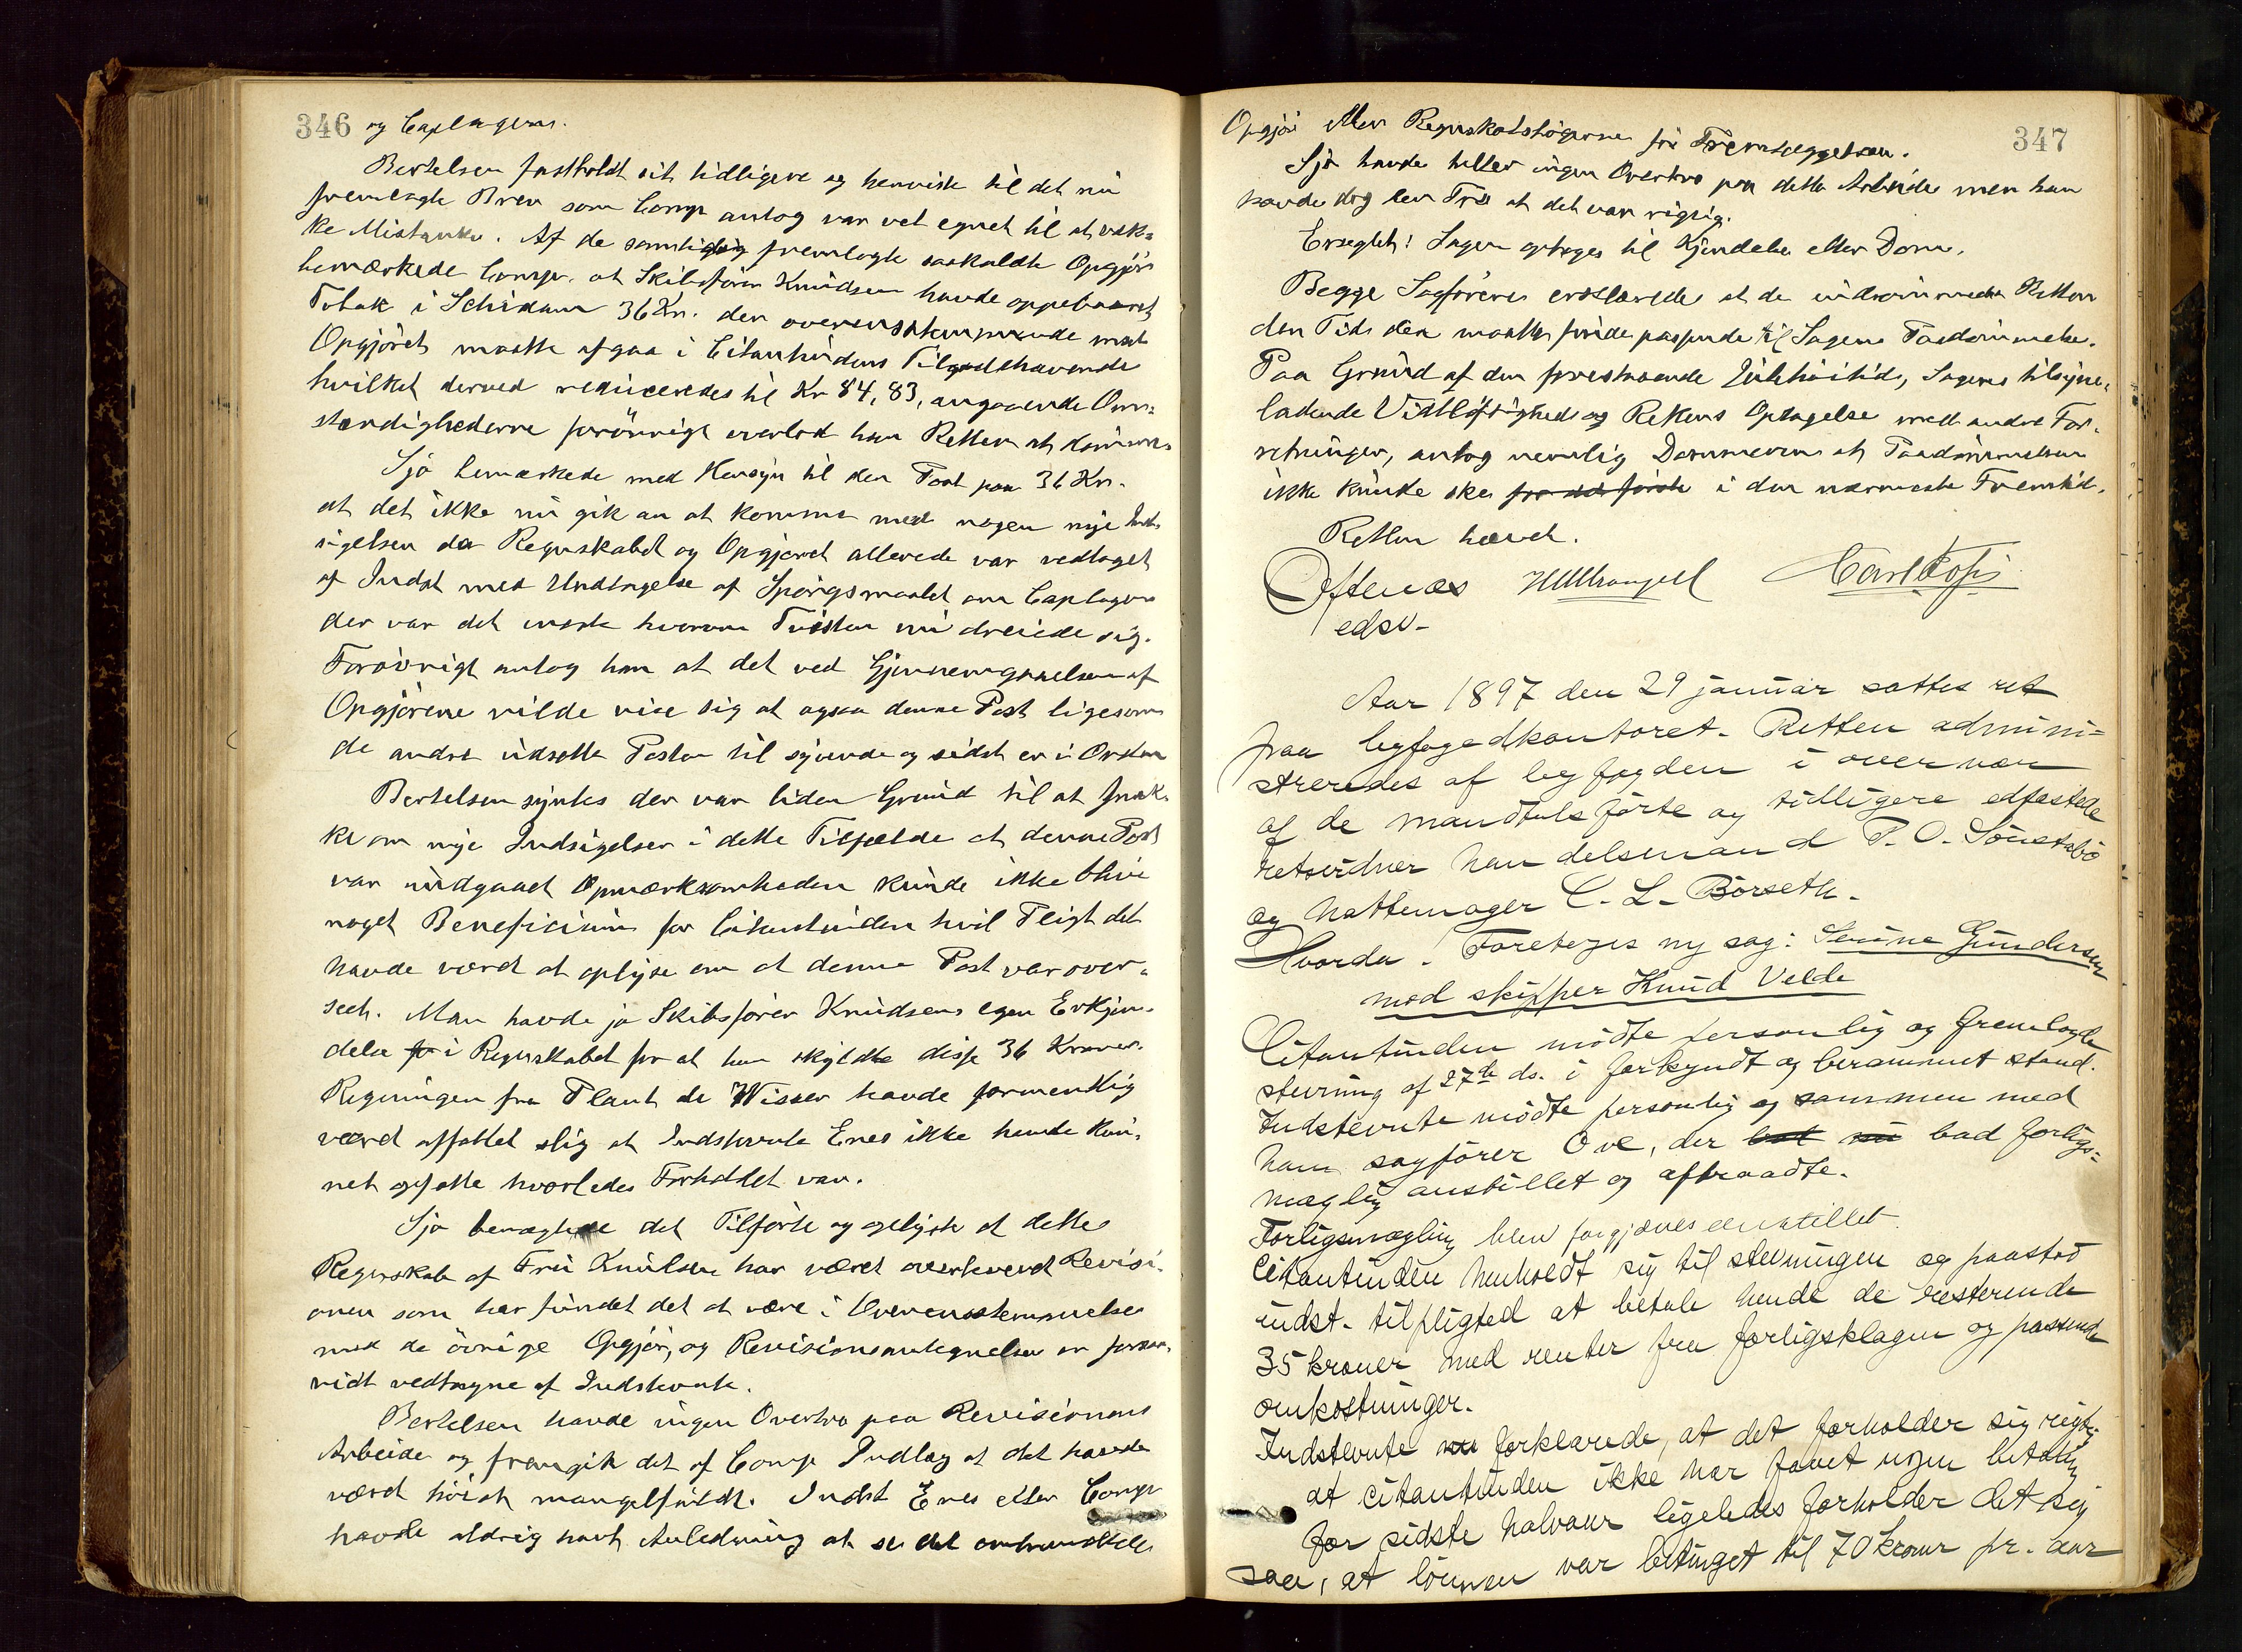 346 og Caplagena.
Bertelsen fastholdt sit tidligere og henviste til det nu
fremlagte Brev som Comp antog var vel egnet til at væk-
ke Mistanke. Af de samtidig fremlagte saakaldte Opgjør
bemærkede Comp. at Skibsfører Knudsen havde oppebaaret
Tobak i Schidam 36 Kr. der overensstemmende med
Opgjöret maatte afgaa i Citantindens Tilgodehavende
hvilket derved reduceredes til Kr 84,83, angaaende Om-
stændighederne forövrigt overlod han Retten at dömme.
Sjö bemærkede med Hensyn til den Post paa 36 Kr.
at det ikke nu gik an at komme med nogen nye Ind-
sigelser da Regnskabet og Opgjöret allerede var vedtaget
af Indst med Undtagelse af Spörgsmaalet om Caplagen
der var det eneste hvorom Tvisten nu dreiede sig.
Forövrigt antog han at det ved Gjennemgaaelsen af
Opgjörene vilde vise sig at ogsaa denne Post ligesom
de andre udsatte Poster til syvende og sidst er i Orden
Bertelsen syntes der var liden Grund til at snak-
ke om nye Indsigelser i dette Tilfælde at denne Post
var undgaaet Opmærksomheden kunde ikke blive
noget Beneficium for Citantinden hvis Pligt det
havdeværet at oplyse om at denne Post var over-
seet. Man havde jo Skibsfører Knudsens egen Erkjen-
delse i Regnskabet for at han skyldte disse 36 Kroner.
Regningen fra Plaut de Wisser havde formentlig
været affattet slig at Indstevnte Enes ikke havde kun-
net opfatte hvorledes Forholdet var.
Sjö benægtede det Tilförte og oplyste at dette
Regnskab af Fru Knudsen har været oversendt Revisi-
onen som har fundet det at være i Overensstemmelse
med de övrige Opgjör, og Revisionsantegnelsen er forsaa-
vidt vedtagne af Indstevnte.
Bertelsen havde ingen Overtro paa Revisionens
Arbeide og fremgik det af Comp Indlæg at det havde
været höist mangelfuldt. Indst Enes eller Comp
havde aldrig havt Anledning at se det omhandlede
347
Opgjör eller Regnskabsbögerne för Fremlæggelsen.
Sjö havde heller ingen Overtro paa dette Arbeide men han
havde dog den Tro at det var rigtig.
Ersegtet! Sagen optages til Kjendelse eller Dom.
Begge Sagförere erklærede at de indrömmede Retten
den Tid den maatte finde passende til Sagens Paadömmelse.
Paa Grund af den forestaaende Julehöitid, Sagens tilsyne-
ladende Vidtlöftighed og Rettens Optagelse med andre For-
retninger, antog nemlig Dommeren at Paadömmelsen
ikke kunde ske for det förste i den nærmeste Fremtid.
Retten hævet.
Oftenæs
edsv-
Aar 1897 den 29 januar sattes ret
paa byfogedkontoret. Retten admini-
streredes af byfogden i overvær
af de mandtalsförte og tidligere edfæstede
retsvidner handelsmand P. O. Sönstabö
og hattemager C. L. Börseth.
Hvorda! Foretoges ny sag: Serine Gundersen
mod skipper Knud Velde
Citantinden mödte personlig og fremlagde
stevning af 27de ds. i forkyndt og berammet stand.
Indstevnte mödte personlig og sammen med
ham sagfører Ove, der bad forligs-
mægling anstillet og afraadte.
Forligsmægling blev forgjæves anstillet.
Citantinden henholdt sig til stevningen og paastod
indst. tilpligtet at betale hende de resterende
35 kroner med renter fra forligsklagen og passende
omkostninger.
Indstevnte forklarede, at det forholder sig rigtig
at citantinden ikke har faaet nogen betaling
for sidste halvaar ligeledes forholder det sig
saa, at lönnen var betinget til 70 kroner pr. aar